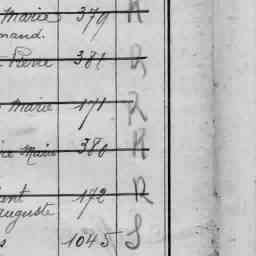 Marie 379 R
mand.
Pierre 381 R
Marie 171 R
rie Marie 380 R
ent 172 R
Auguste
s 1045 S